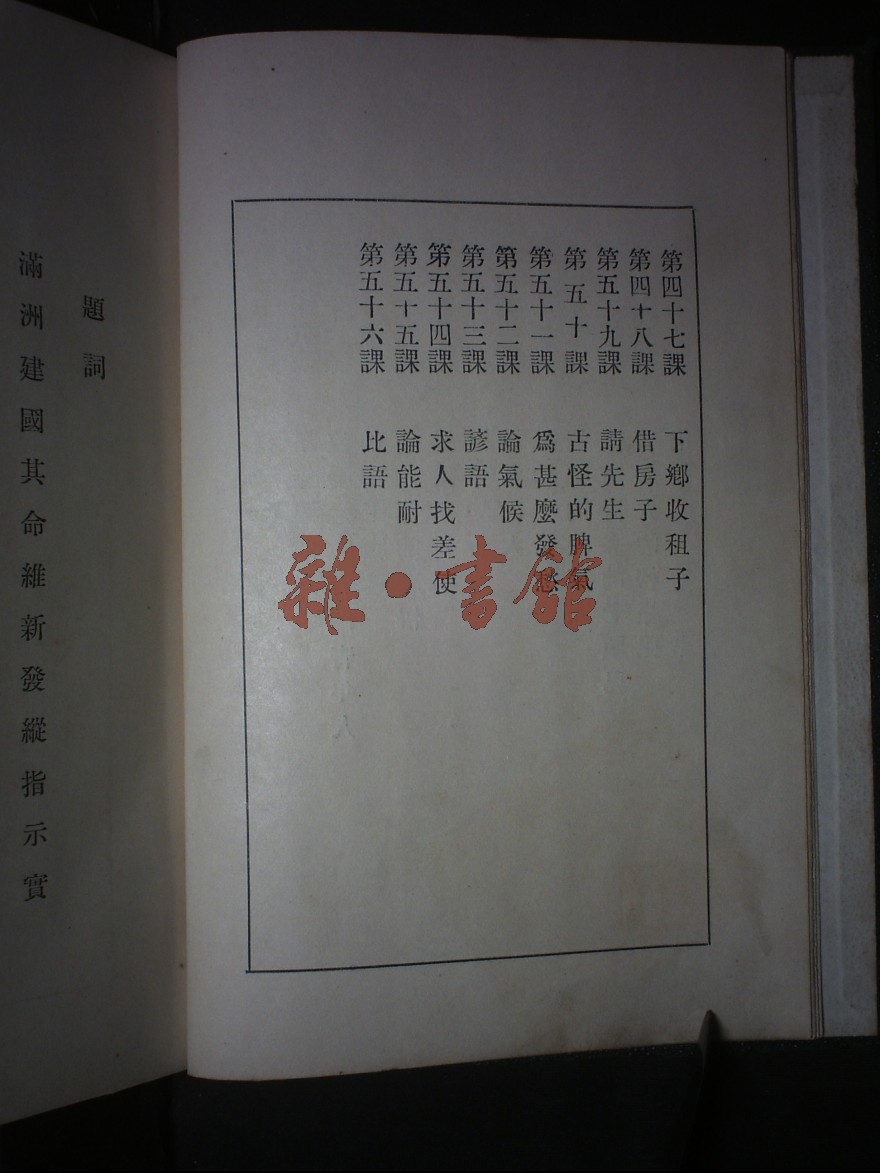 第四十七課 下鄉收租子
第四十八課 借房子
第五十九課 請先生
第五十課 古怪的脾氣
第五十一課 爲甚麼發愁
第五十二課 論氣候
第五十三課 諺語
第五十四課 求人找差使
第五十五課 論能耐
第五十六課 比語
題詞
滿洲建國其命維新發縱指示實
雜·書館